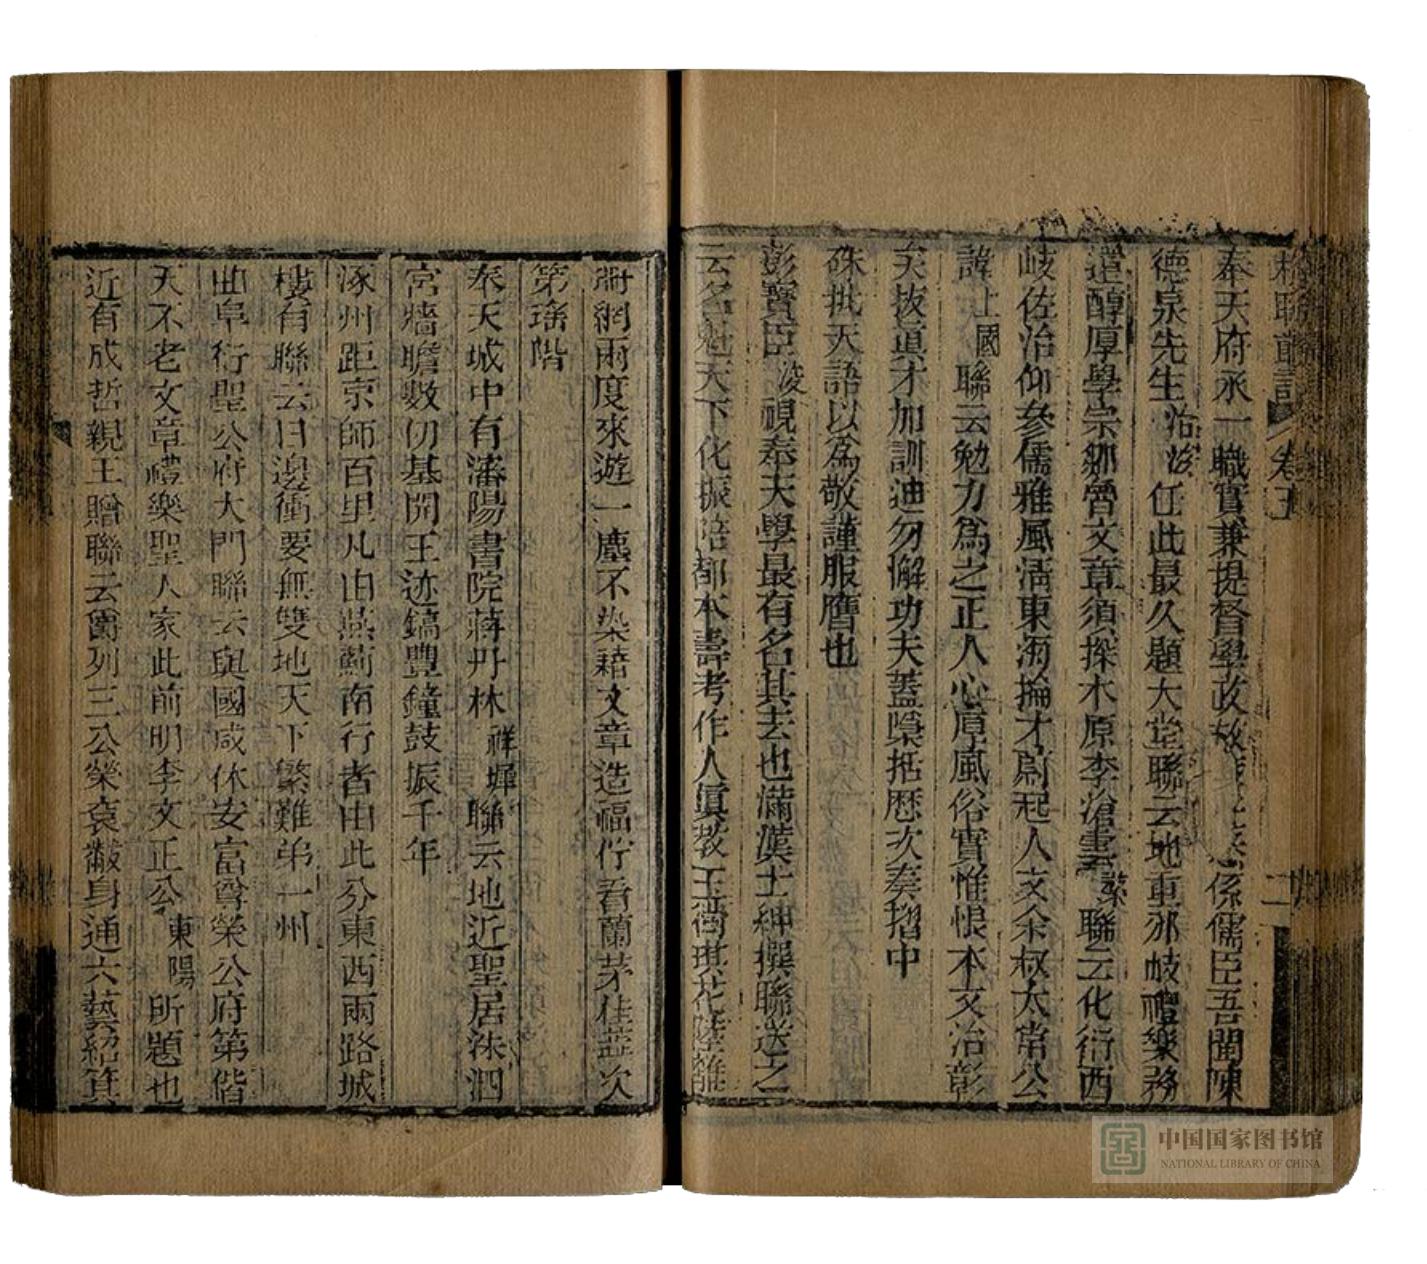 楹聯叢話 卷五 二
奉天府丞一職實兼提督學政故 係儒臣吾閩陳
德泉先生治滋任此最久題大堂聯云地重邠岐禮樂務
還醇厚學宗鄒魯文章須探本原李滄雲 聯云化衍西
岐佐治仰參儒雅風淸東海掄才蔚起人文余叔太常公
諱上國聯云勉力爲之正人心厚風俗實惟恨本文治彰
矣拔眞才加訓迪勿懈功夫蓋檃括歷次奏摺中
硃批天語以爲敬謹服膺也
彭寶臣浚視奉天學最有名其去也滿漢士紳撰聯送之
云名魁天下化振陪都本壽考作人眞敎玉筍琪花陸離
珊網兩度來遊一塵不染藉文章造福佇看蘭茅桂蕊次
第瑤階
奉天城中有瀋陽書院蔣丹林祥墀聯云地近聖居洙泗
宮牆瞻數仞基開王迹鎬豐鐘鼓振千年
涿州距京師百里凡由燕薊南行者由此分東西兩路城
樓有聯云日邊衝要無雙地天下繁難弟一州
曲阜衍聖公府大門聯云與國咸休安富尊榮公府第偕
天不老文章禮樂聖人家此前明李文正公東陽所題也
近有成哲親王贈聯云爵列三公榮袞黻身通六藝紹箕
中国国家图书馆
NATIONAL LIBRARY OF CHINA